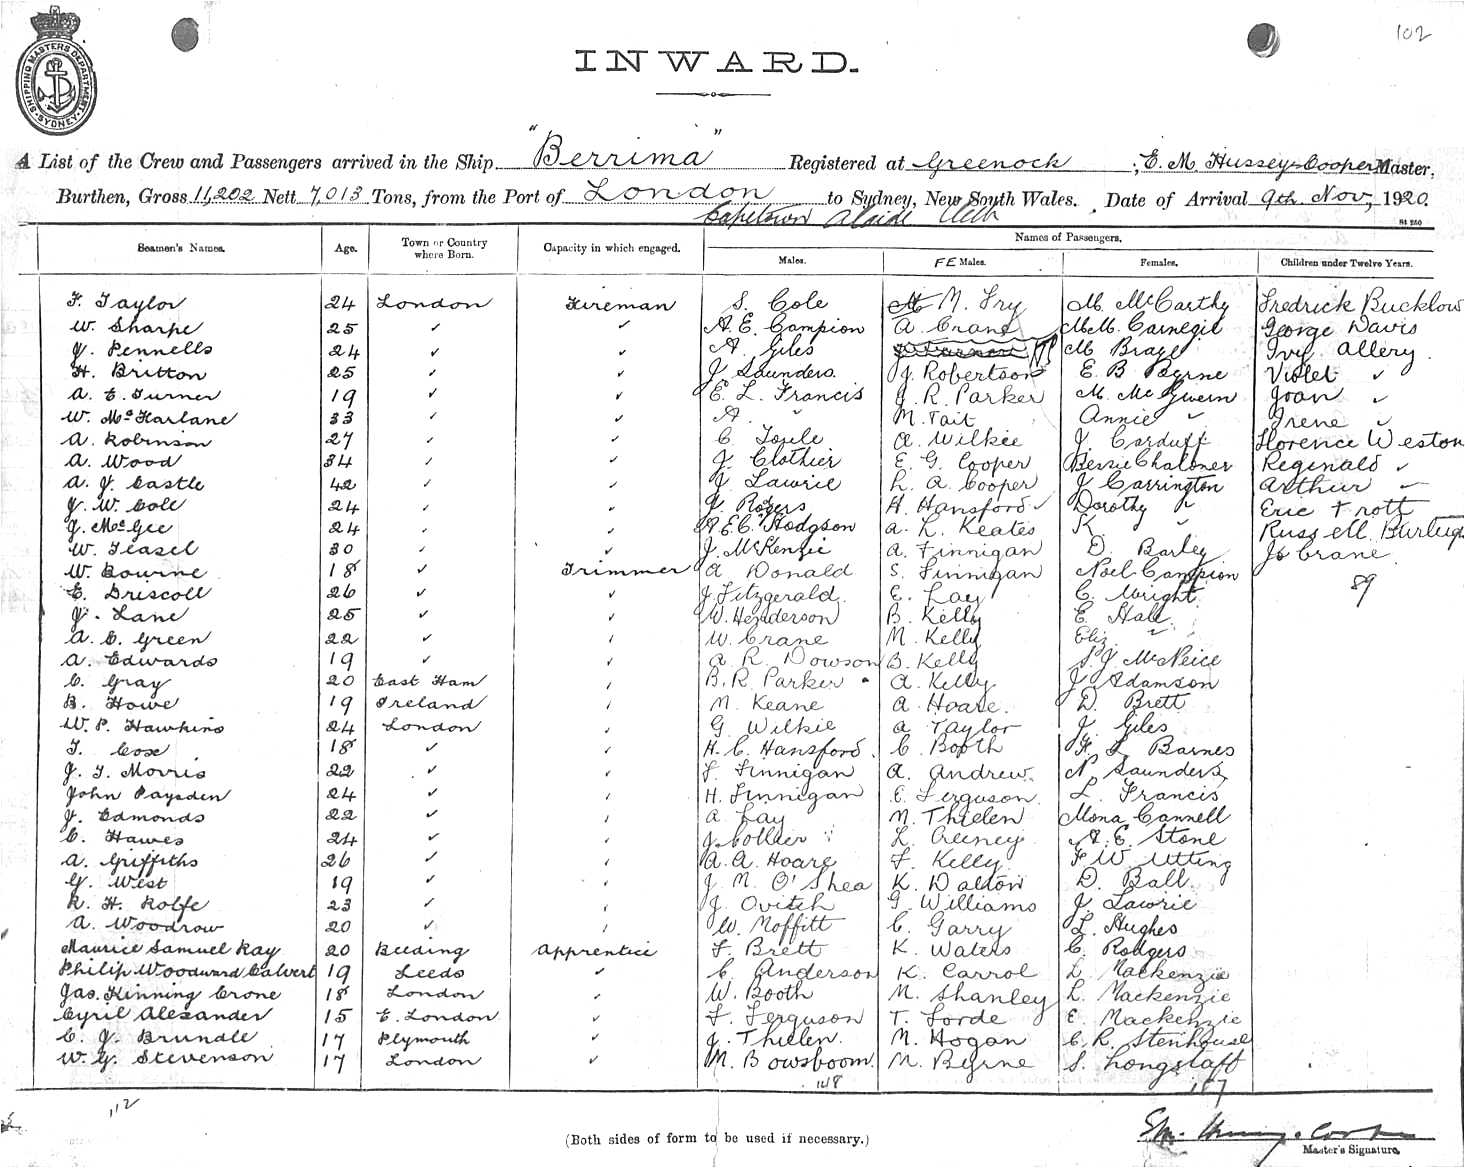 102
SHIPPING MASTERS DEPARTMENT SYDNEY
INWARD.
A List of the Crew and Passengers arrived in the Ship "Berrima" Registered at Greenock, E. M. Hussey-Cooper Master,
Burthen, Gross 11,202 Nett 7,013 Tons, from the Port of London to Sydney, New South Wales. Date of Arrival 9th Nov, 1920.
Capetown
Seamen's Names. Age. Town or Country where Born. Capacity in which engaged. Names of Passengers.
Males. FE Males. Females. Children under Twelve Years.
F. Taylor 24 London Fireman S. Cole M. Fry M. McCarthy Fredrick Bucklow
W. Sharpe 25 ✓ ✓ A. E. Campion A. Crane M M. Carnegie George Davis
J. Pennells 24 ✓ ✓ A. Giles M. Ivy Allery.
H. Britton 25 ✓ ✓ J. Saunders. J. Robertson E. B Byrne Violet ✓
A. E. Turner 19 ✓ ✓ E. L. Francis J. R. Parker M. McGivern Joan ✓
W. McFarlane 33 ✓ ✓ A. " M. Tait Annie " Irene ✓
A. Robinson 27 ✓ ✓ C. A. Wilkie J. Carduff Florence Weston
A. Wood 34 ✓ ✓ J. Clothier E. G. Cooper Bessie Chaloner Reginald ✓
A. J. Castle 42 ✓ ✓ J. Lawrie L. A. Cooper J Carrington Arthur ✓
J. W. Cole 24 ✓ ✓ J. Rogers H. Hansford Dorothy " Eric Trott
J. McGee 24 ✓ ✓ A E C Hodgson A. L. Keates K. " Russell
W. Teasel 30 ✓ ✓ J. McKenzie A. Finnigan D. Barley Crane
W. Bourne 18 ✓ Trimmer A Donald S. Finnigan Noel Campion 89
E. Driscoll 26 ✓ ✓ J. Fitzgerald. E. Lay C. Wright
J. Lane 25 ✓ ✓ W. Henderson B. Kelly E. Hall
A. C. Green 22 ✓ ✓ W. Crane M. Kelly Eliz. "
A. Edwards 19 ✓ ✓ A R. Dowson B. Kelly S. J McNeice
C. Gray 20 East Ham ✓ B. R. Parker A. Kelly J. Adamson
B. Howe 19 Ireland ✓ M. Keane A. Hoare. D. Brett
W. P. Hawkins 24 London ✓ G. Wilkie A Taylor J. Giles
T. Cose 18 ✓ ✓ H. C. Hansford. C. Booth L Barnes
J. T. Morris 22 ✓ ✓ F. Finnigan A. Andrew. N. Saunders
John Paysden 24 ✓ ✓ H. Finnigan E. Ferguson. L. Francis
J. Edmonds 22 ✓ ✓ A Lay N. Thielen Mona Cannell
C. Hawes 24 ✓ ✓ J. Collier L. Creeney A. E. Stone
A. Griffiths 26 ✓ ✓ A. A. Hoare F. Kelly F W Utting
G. West 19 ✓ ✓ J. M. O'Shea K. Dalton D. Ball.
R. H. Rolfe 23 ✓ ✓ J. Ovitch G. Williams J. Lawrie
A. Woodrow 20 ✓ ✓ W. Moffitt C. Garry L. Hughes
Maurice Samuel Ray 20 Beeding Apprentice F. Brett K. Waters C. Rodgers
Philip Woodward Calvert 19 Leeds ✓ C. Anderson K. Carrol L. Mackenzie
Jas. Kinning Crone 18 London ✓ W. Booth M. Shanley L. Mackenzie
Cyril Alexander 15 E. London ✓ F. Ferguson T. Forde E. Mackenzie
C. J. Brundle 17 Plymouth ✓ J. Thielen. M. Hogan C. R. Stenhouse
W. G. Stevenson 17 London ✓ M. Bowsboom. M. Byrne S. Longstaff
148 187
112
(Both sides of form to be used if necessary.)
Master's Signature.